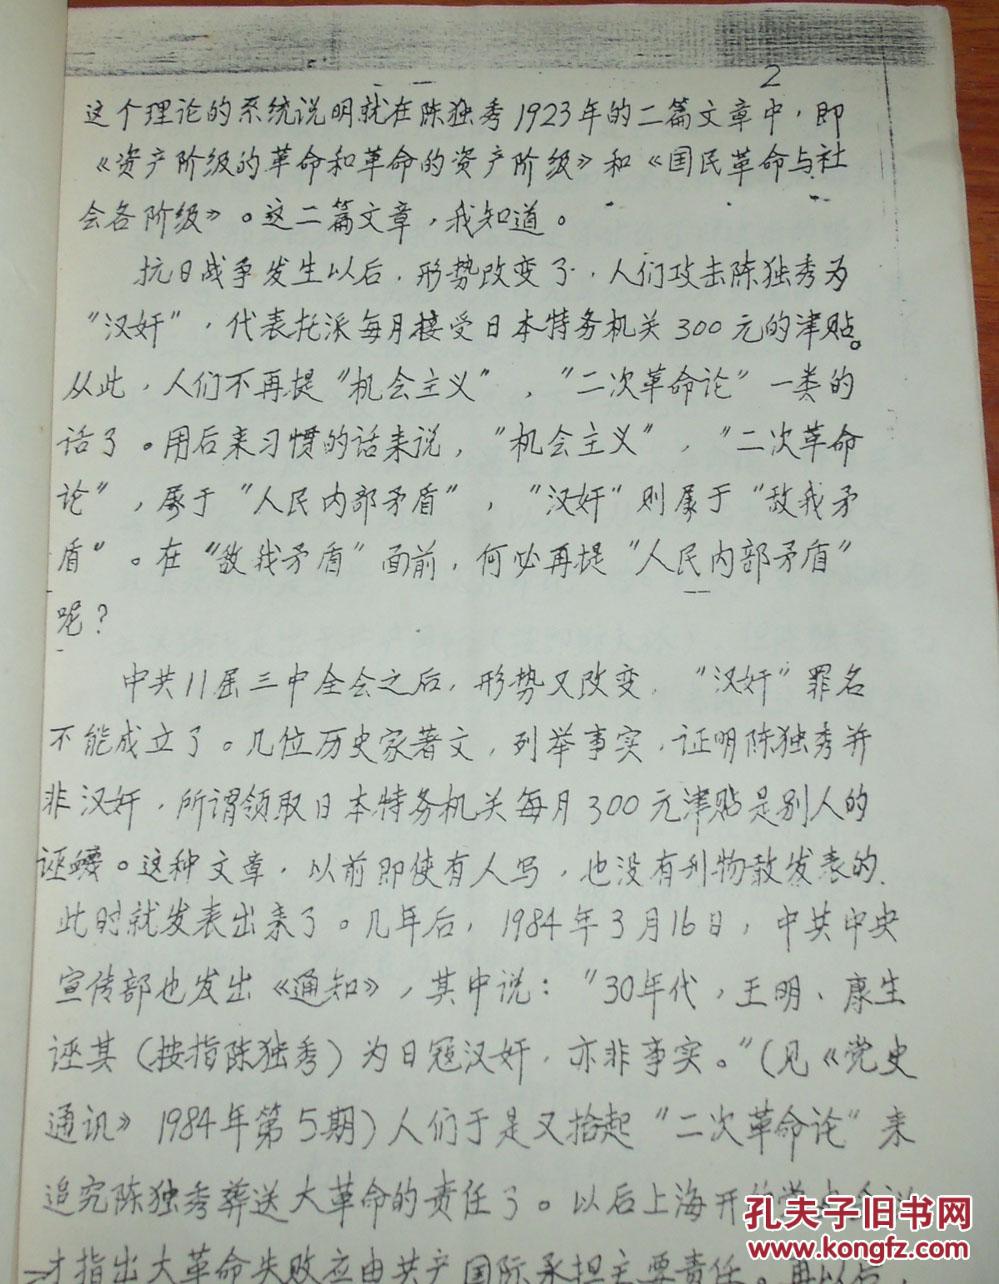 2
这个理论的系统说明就在陈独秀1923年的二篇文章中，即
《资产阶级的革命和革命的资产阶级》和《国民革命与社
会各阶级》。这二篇文章，我知道。
抗日战争发生以后，形势改变了，人们攻击陈独秀为
“汉奸”，代表托派每月接受日本特务机关300元的津贴。
从此，人们不再提“机会主义”，“二次革命论”一类的
话了。用后来习惯的话来说，“机会主义”，“二次革命
论”，属于“人民内部矛盾”，“汉奸”则属于“敌我矛
盾”。在“敌我矛盾”面前，何必再提“人民内部矛盾”
呢？
中共11届三中全会之后，形势又改变，“汉奸”罪名
不能成立了。几位历史家著文，列举事实，证明陈独秀并
非汉奸，所谓领取日本特务机关每月300元津贴是别人的
诬蔑。这种文章，以前即使有人写，也没有刊物敢发表的，
此时就发表出来了。几年后，1984年3月16日，中共中央
宣传部也发出《通知》，其中说：“30年代，王明、康生
诬其（按指陈独秀）为日寇汉奸，亦非事实。”（见《党史
通讯》1984年第5期）人们于是又拾起“二次革命论”来
追究陈独秀葬送大革命的责任了。以后上海开的
才指出大革命失败应由共产国际承担主要责任。
孔夫子旧书网
www.kongfz.com